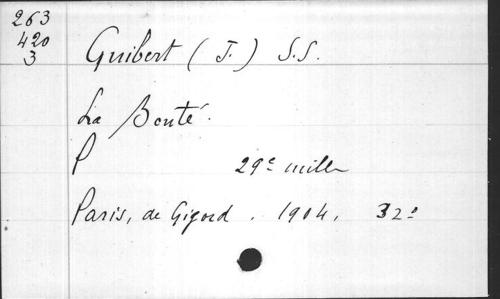 263
420
3
Guibert (J.) S.S.
La Bonté.
P
29e mille
Paris, de Gigord. 1904. 32°